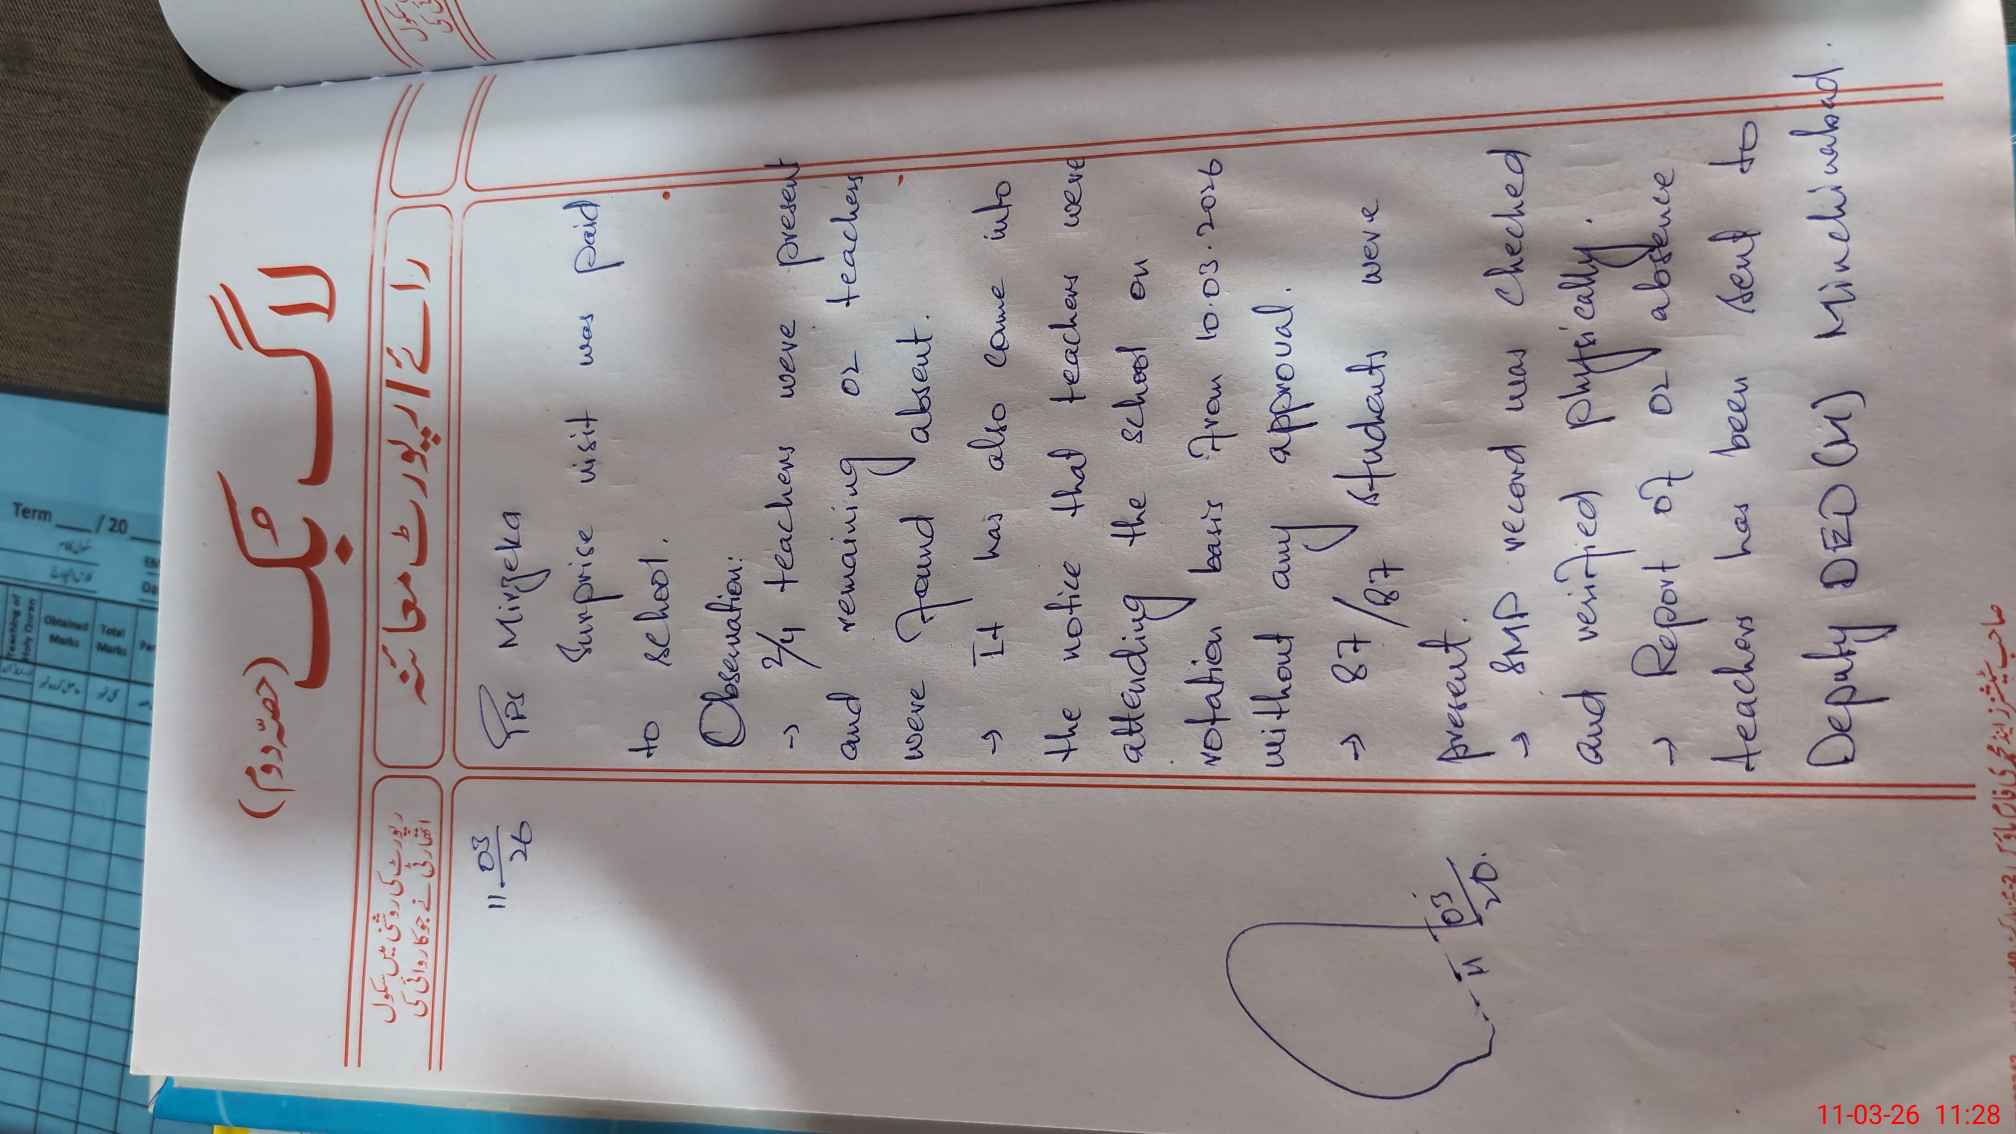 لاگ بک
(حصہ دوم)
رائے / رپورٹ معائنہ
رپورٹ کی روشنی میں سکول
اتھارٹی نے جو کاروائی کی
11-03/26
GPS Mirzeka
Surprise visit was paid
to school.
Observation:
→ 2/4 teachers were present
and remaining 02 teachers
were found absent.
→ It has also come into
the notice that teachers were
attending the school on
rotation basis from 10.03.2026
without any approval.
→ 87/87 students were
present.
→ SMP record was checked
and verified physically.
→ Report of 02 absence
teachers has been sent to
Deputy DEO (M) Minchinabad.
Term ___ / 20
Teaching of
Holy Quran
Obtained
Marks
Total
Marks
11-03-26 11:28